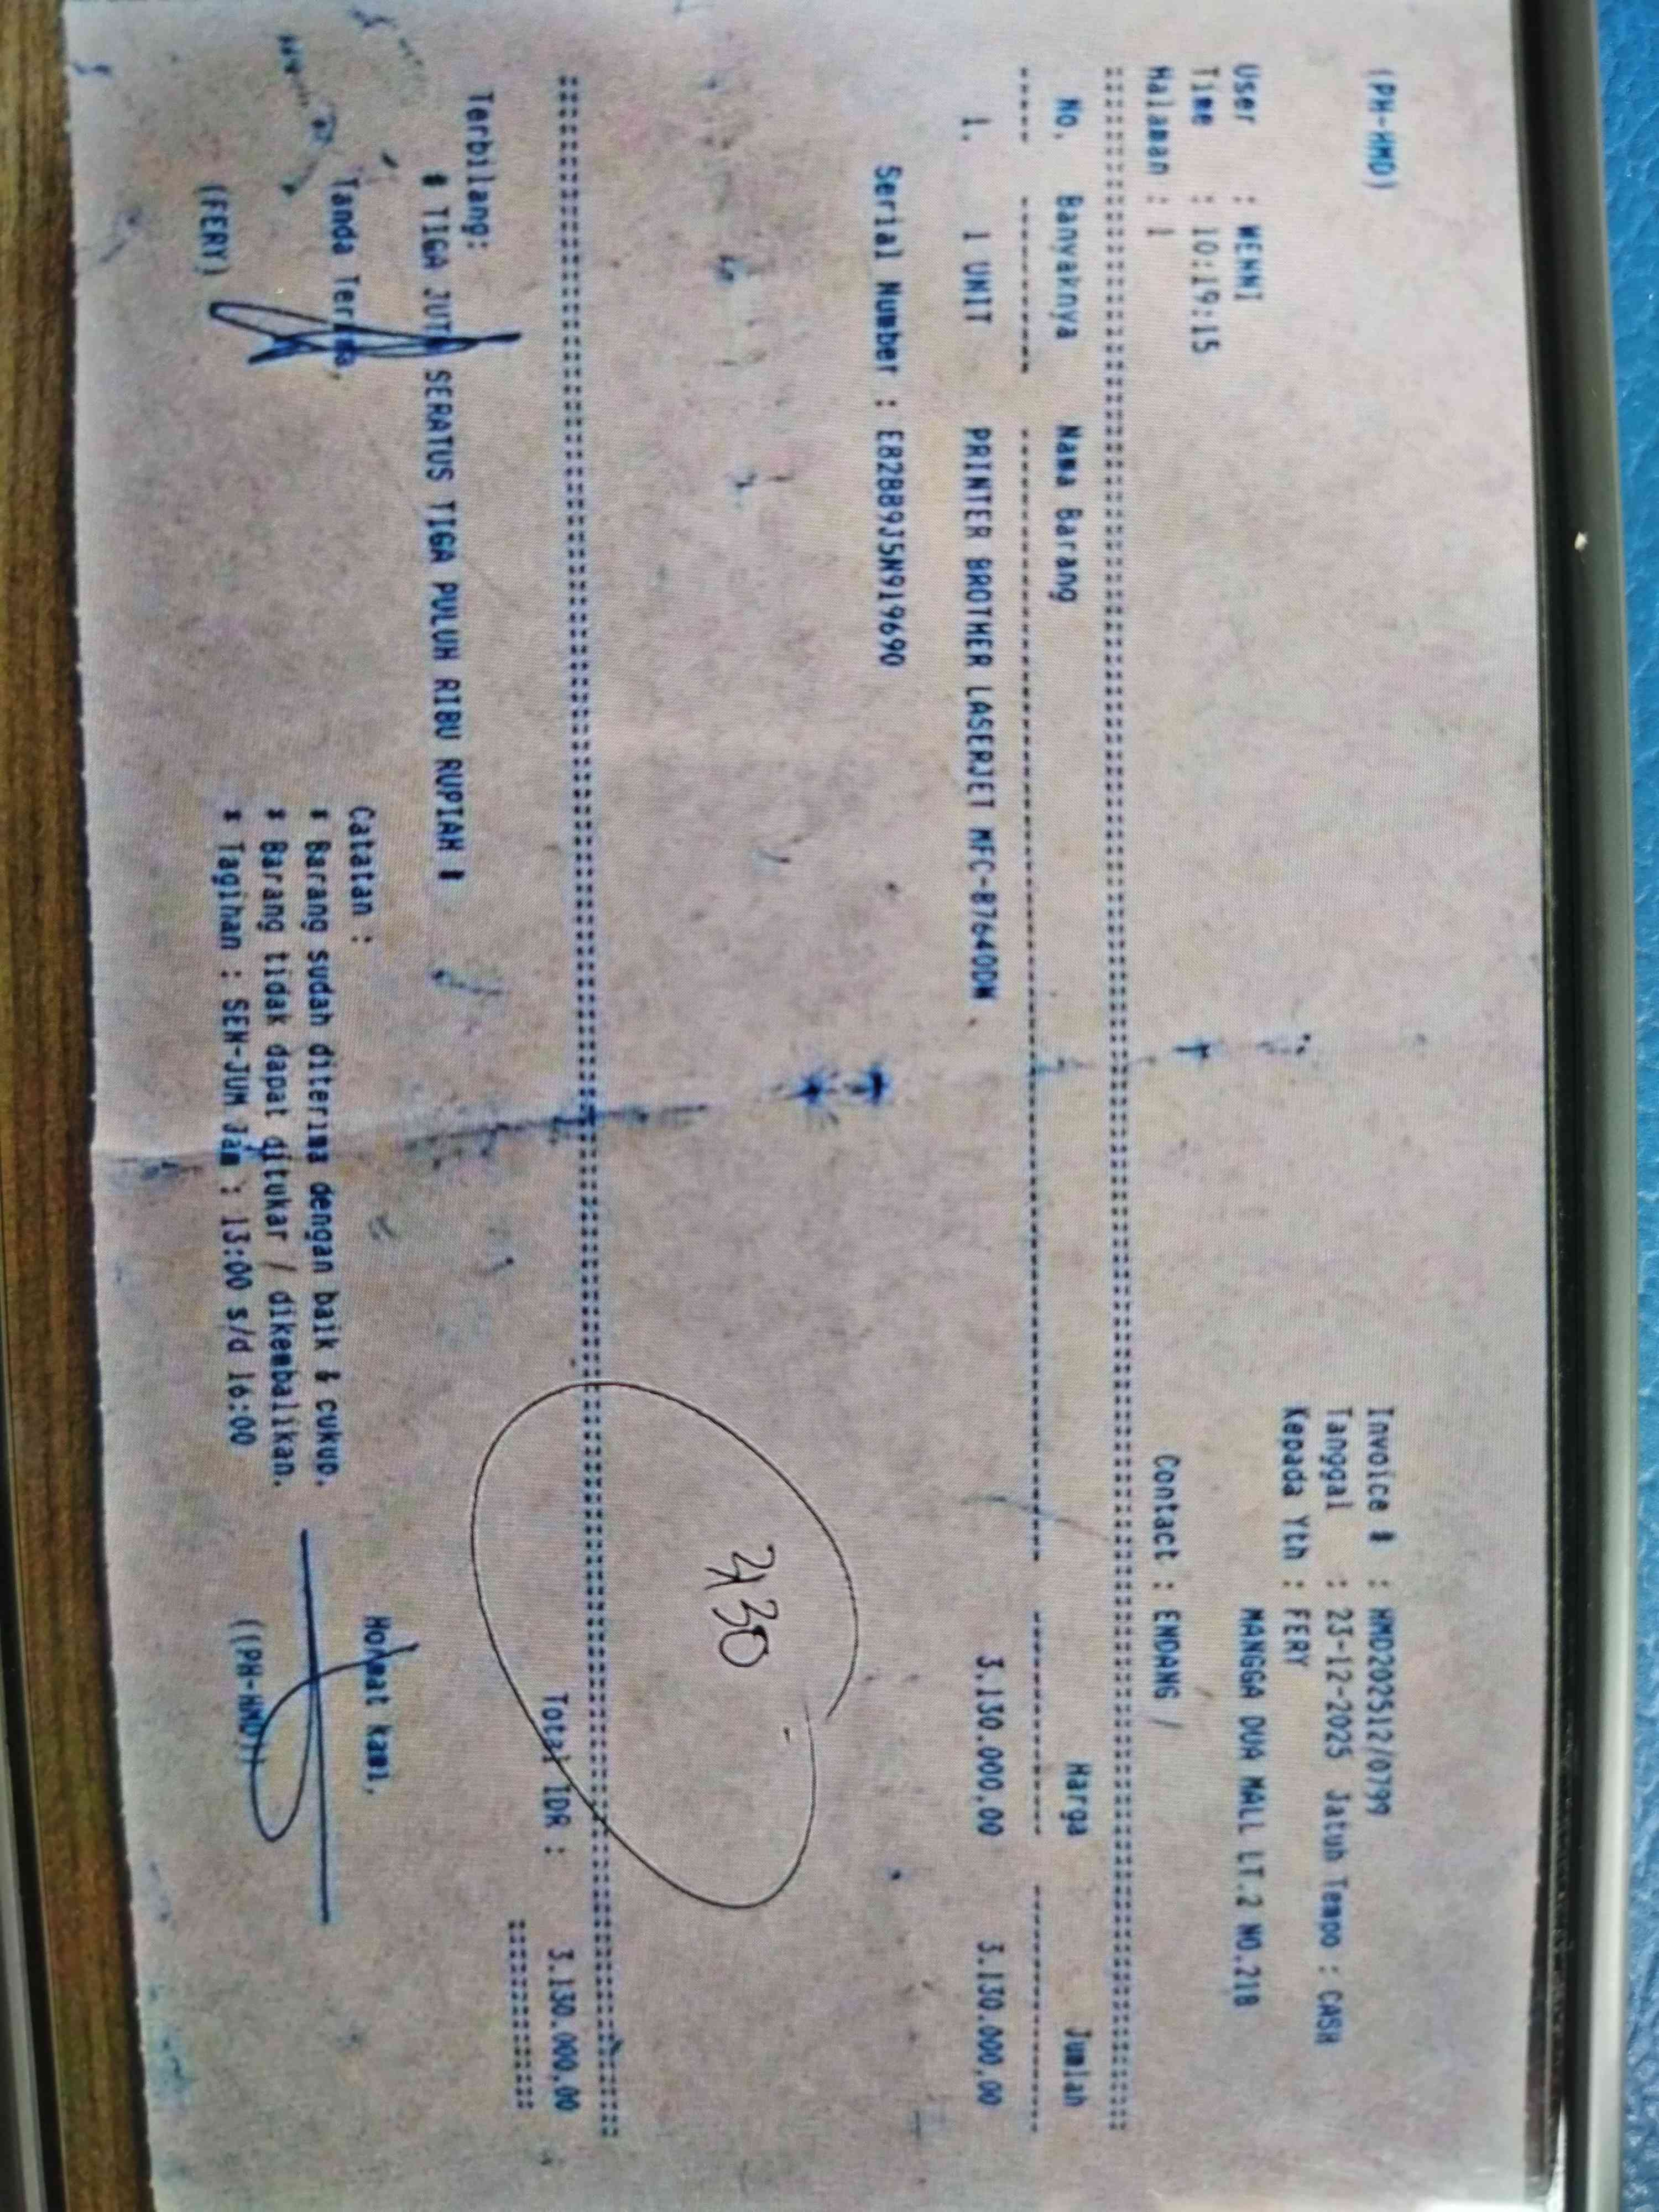 (PH-HMD)
Invoice # : HMD202512/0799
Tanggal : 23-12-2025 Jatuh Tempo : CASH
Kepada Yth : FERY
User : WENNI
MANGGA DUA MALL LT.2 NO.21B
Time : 10:19:15
Halaman : 1
Contact : ENDANG /
No. Banyaknya Nama Barang Harga Jumlah
1. 1 UNIT PRINTER BROTHER LASERJET MFC-B7640DW 3.130.000,00 3.130.000,00
Serial Number : E82889J5N919690
Total IDR : 3.130.000,00
Terbilang:
# TIGA JUTA SERATUS TIGA PULUH RIBU RUPIAH #
Tanda Terima,
Catatan :
Hormat kami,
* Barang sudah diterima dengan baik & cukup.
* Barang tidak dapat ditukar / dikembalikan.
* Tagihan : SEN-JUM Jam : 13:00 s/d 16:00
(FERY)
((PH-HMD))